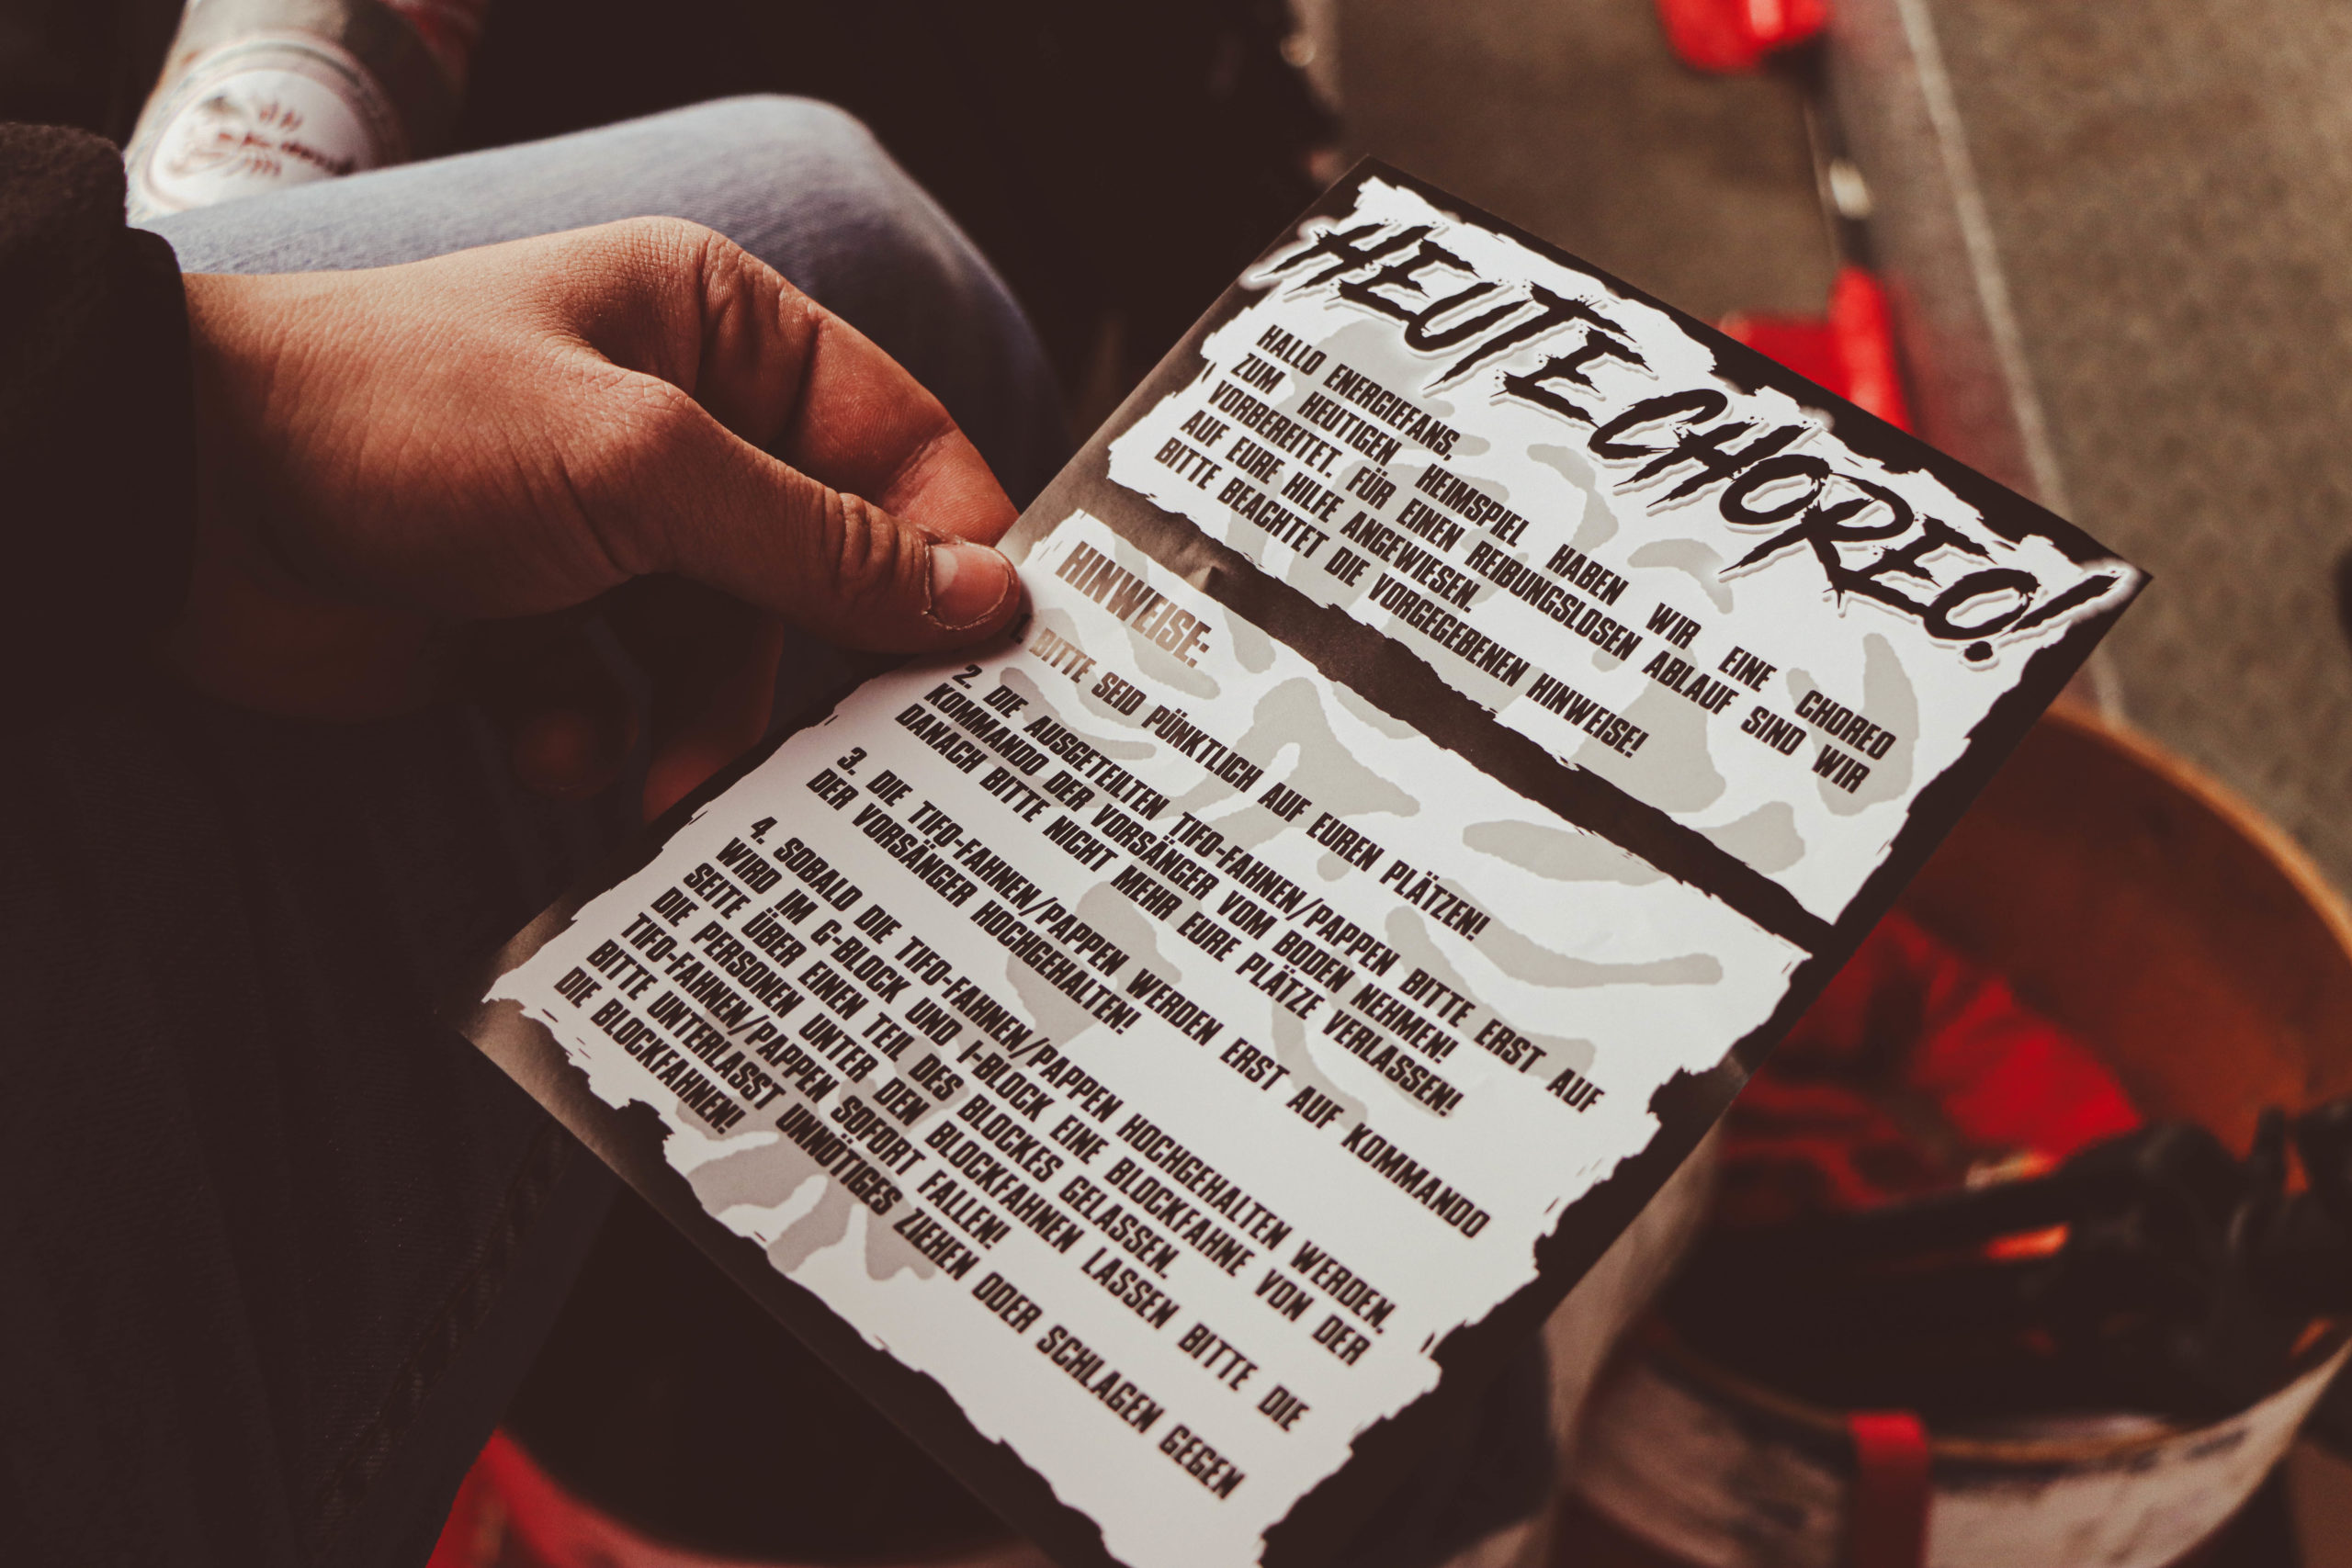 HEUTE CHOREO!
HALLO ENERGIEFANS,
ZUM HEUTIGEN HEIMSPIEL HABEN WIR EINE CHOREO
VORBEREITET. FÜR EINEN REIBUNGSLOSEN ABLAUF SIND WIR
AUF EURE HILFE ANGEWIESEN.
BITTE BEACHTET DIE VORGEGEBENEN HINWEISE!
HINWEISE:
BITTE SEID PÜNKTLICH AUF EUREN PLÄTZEN!
2. DIE AUSGETEILTEN TIFO-FAHNEN/PAPPEN BITTE ERST AUF
KOMMANDO DER VORSÄNGER VOM BODEN NEHMEN!
DANACH BITTE NICHT MEHR EURE PLÄTZE VERLASSEN!
3. DIE TIFO-FAHNEN/PAPPEN WERDEN ERST AUF KOMMANDO
DER VORSÄNGER HOCHGEHALTEN!
4. SOBALD DIE TIFO-FAHNEN/PAPPEN HOCHGEHALTEN WERDEN,
WIRD IM G-BLOCK UND I-BLOCK EINE BLOCKFAHNE VON DER
SEITE ÜBER EINEN TEIL DES BLOCKES GELASSEN.
DIE PERSONEN UNTER DEN BLOCKFAHNEN LASSEN BITTE DIE
TIFO-FAHNEN/PAPPEN SOFORT FALLEN!
BITTE UNTERLASST UNNÖTIGES ZIEHEN ODER SCHLAGEN GEGEN
DIE BLOCKFAHNEN!